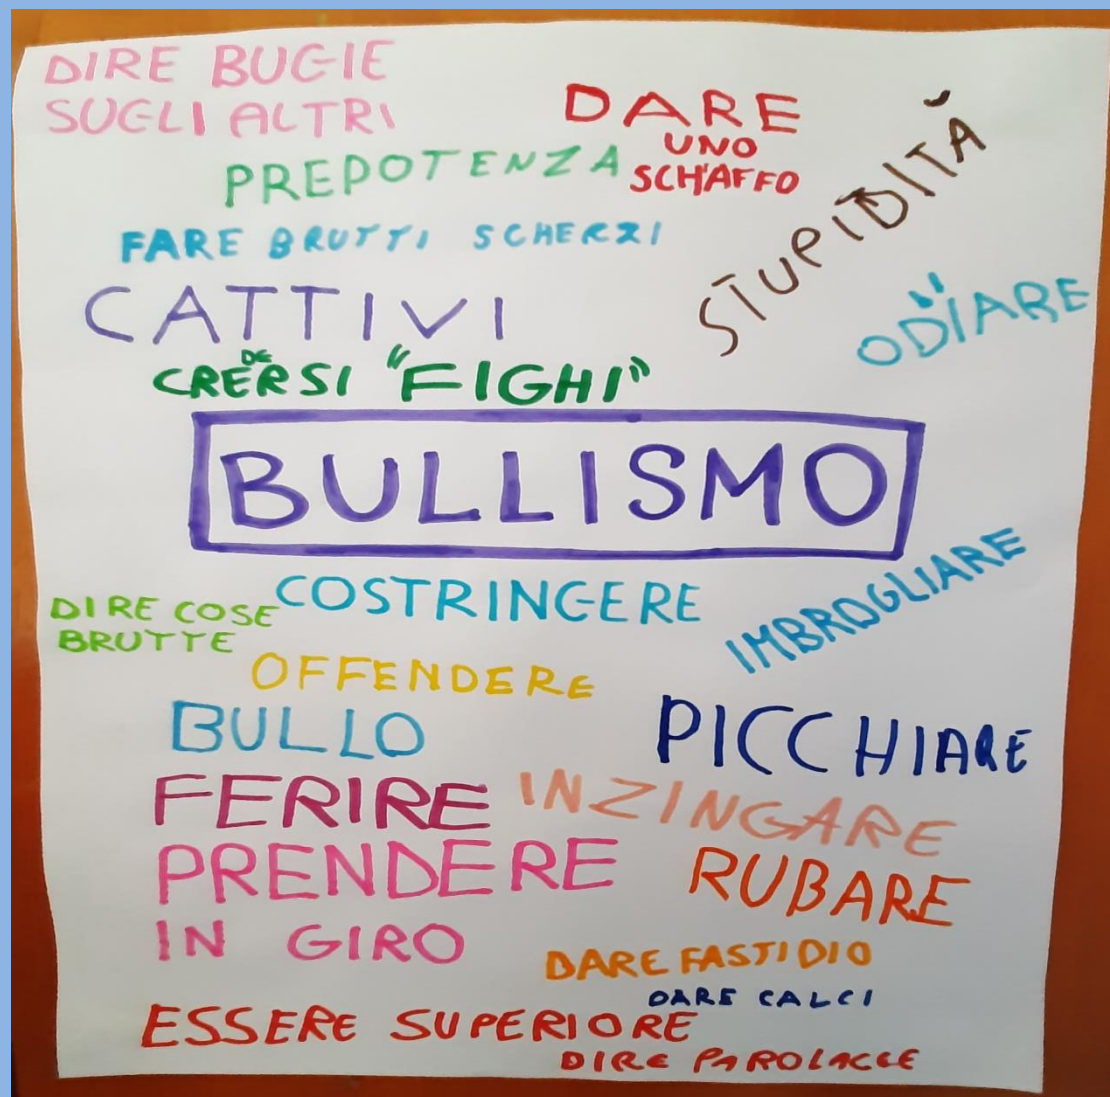 DIRE BUGIE
SUGLI ALTRI
DARE
UNO
SCHIAFFO
PREPOTENZA
STUPIDITÀ
FARE BRUTTI SCHERZI
CATTIVI
ODIARE
CREDERSI "FIGHI"
BULLISMO
COSTRINGERE
IMBROGLIARE
DIRE COSE
BRUTTE
OFFENDERE
BULLO
PICCHIARE
FERIRE
INZINGARE
PRENDERE
IN GIRO
RUBARE
DARE FASTIDIO
DARE CALCI
ESSERE SUPERIORE
DIRE PAROLACCE